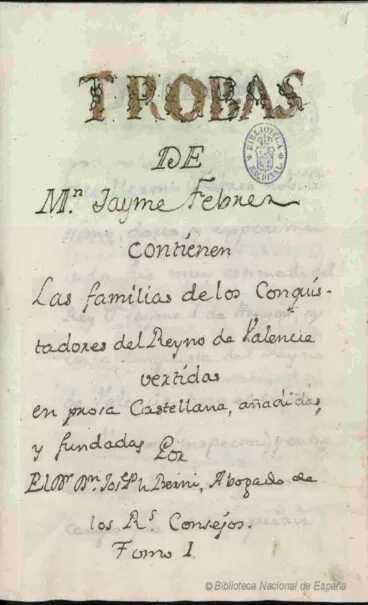 TROBAS
DE
Mn. Jayme Febrer
contienen
Las familias de los Conquis-
tadores del Reyno de Valencia
vertidas
en prosa Castellana, añadidas,
y fundadas Por
El Dr. Dn. Berni, Abogado de
los Rs. Consejos.
Tomo I.
BIBLIOTECA NACIONAL
© Biblioteca Nacional de España